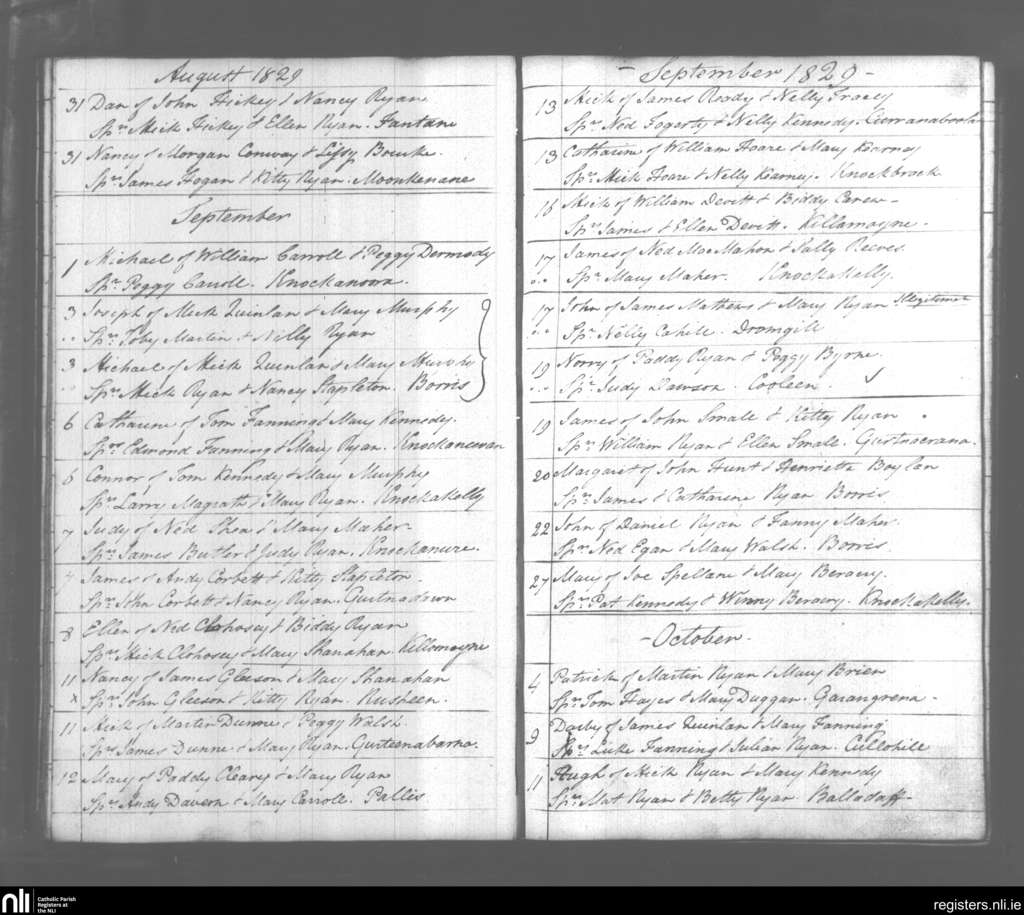 August 1829
31 Dan of John Hickey & Nancy Ryan
Sprs Mick Hickey & Ellen Ryan. Fantane
31 Nancy of Morgan Conway & Lissy Bourke.
Sprs James Hogan & Kitty Ryan. Moonkenane
September
1 Michael of William Carroll & Peggy Dermody
Spr Peggy Carroll. Knockanowa.
3 Joseph of Mick Quinlan & Mary Murphy
Sprs Toby Martin & Nelly Ryan
3 Michael of Mick Quinlan & Mary Murphy
Sprs Mick Ryan & Nancy Stapleton. Borris
6 Catharine of Tom Fanning & Mary Kennedy.
Sprs Edmond Fanning & Mary Ryan. Knockanevan
6 Connor of Tom Kennedy & Mary Murphy
Sprs Larry Magrath & Mary Ryan. Knockakelly
7 Judy of Ned Shea & Mary Maher
Sprs James Butler & Judy Ryan. Knockanure.
7 James of Andy Corbett & Kitty Stapleton.
Sprs John Corbett & Nancy Ryan. Gurtnadawn
8 Ellen of Ned Clohosey & Biddy Ryan
Sprs Mick Clohosey & Mary Shanahan. Killamoyne
11 Nancy of James Gleeson & Mary Shanahan
x Sprs John Gleeson & Kitty Ryan. Rusheen.
11 Mick of Martin Dunne & Peggy Walsh.
Sprs James Dunne & Mary Ryan. Gurteenabarna.
12 Mary of Paddy Cleary & Mary Ryan
Sprs Andy Davern & Mary Carroll. Pallis
- September 1829 -
13 Mick of James Ready & Nelly Tracey
Sprs Ned Fogarty & Nelly Kennedy.
13 Catharine of William Hoare & Mary Kearney
Sprs Mick Hoare & Nelly Kearney. Knockbrack
16 Mick of William Devitt & Biddy Carew
Sprs James & Ellen Devitt. Killamoyne.
17 James of Ned MacMahon & Sally Reeves.
Spr Mary Maher. Knockakelly.
17 John of James Mathews & Mary Ryan Illegitimate
Spr Nelly Cahill. Dromgill
19 Norry of Paddy Ryan & Peggy Byrne.
Spr Judy Dawson. Cooleen.
19 James of John Smale & Kitty Ryan
Sprs William Ryan & Ellen Smale. Gurtnacrana.
20 Margaret of John Hunt & Henrietta Boylan
Sprs James & Catharine Ryan Borris
22 John of Daniel Ryan & Fanny Maher.
Sprs Ned Egan & Mary Walsh. Borris.
27 Mary of Joe Spellane & Mary Beraery.
Sprs Pat Kennedy & Winny Beraery. Knockakelly.
- October -
4 Patrick of Martin Ryan & Mary Brien
Sprs Tom Hayes & Mary Duggan. Garangrena -
9 Darby of James Quinlan & Mary Fanning
Sprs Luke Fanning & Julian Ryan. Cullohill
11 Hugh of Mick Ryan & Mary Kennedy
Sprs Mat Ryan & Betty Ryan. Balladuff-
nli
Catholic Parish
Registers at
the NLI
registers.nli.ie